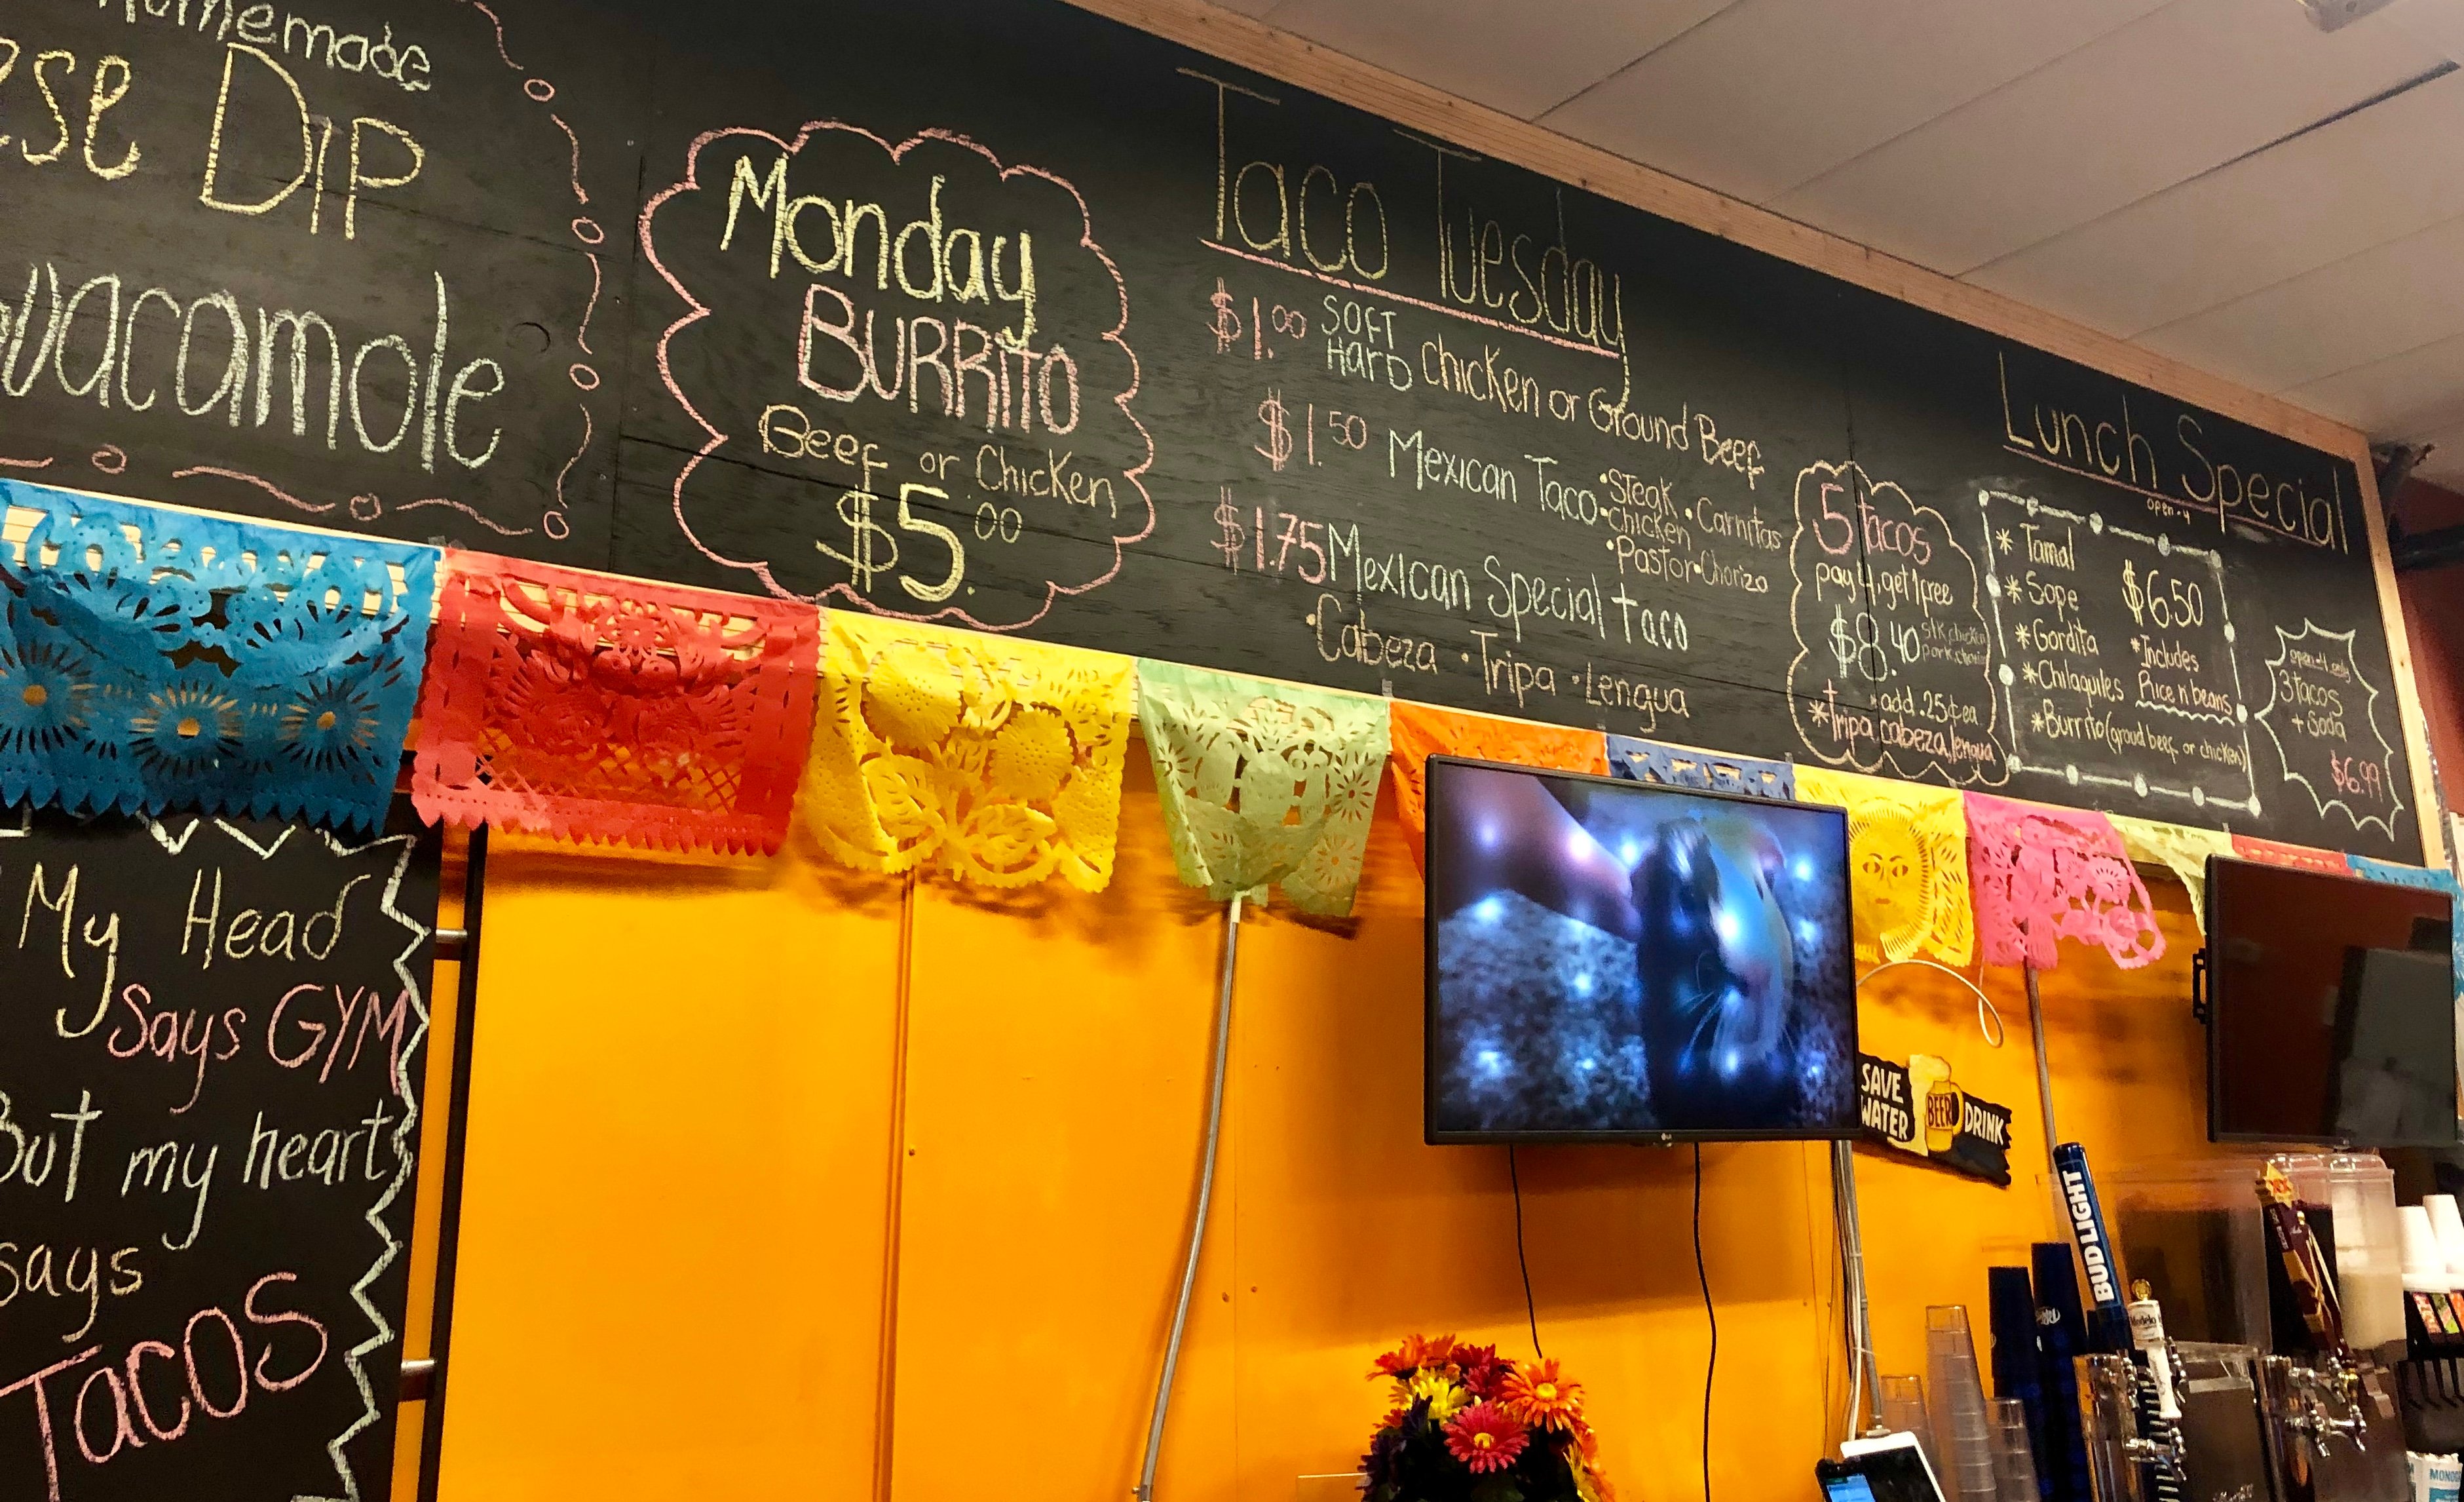 Homemade
ese DIP
uacamole
Monday
BURRITO
Beef or Chicken
$5.00
Taco Tuesday
$1.00 SOFT HARD chicken or Ground Beef
$1.50 Mexican Taco
•Steak •Carnitas
•chicken
•Pastor •Chorizo
$1.75 Mexican Special taco
•Cabeza •Tripa •Lengua
5 tacos
pay 4, get 1 free
$8.40
stk, chicken
pork,
add .25¢ ea
*tripa, cabeza, lengua
Lunch Special
open-4
* Tamal
* Sope
* Gordita
* Chilaquiles
* Burrito (groud beef or chicken)
$6.50
*Includes
Rice n beans
open-4 only
3 tacos
+ Soda
$6.99
My Head
Says GYM
But my heart
says
TACOS
SAVE
WATER
BEER
DRINK
BUD LIGHT
Modelo
LG